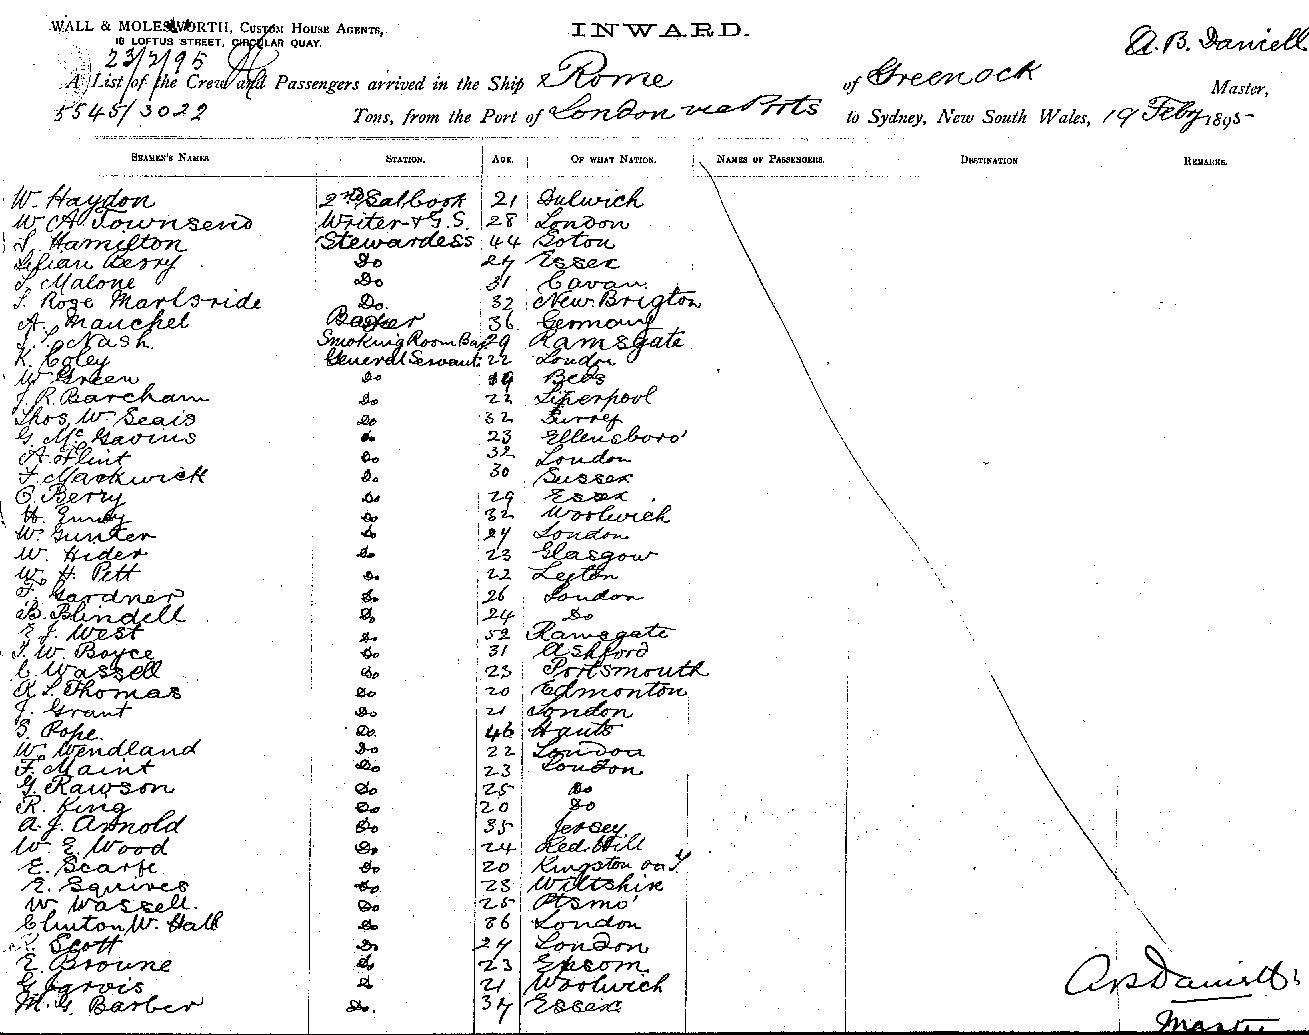 WALL & MOLESWORTH, CUSTOM HOUSE AGENTS,
16 LOFTUS STREET, CIRCULAR QUAY.
INWARD.
A. B. Daniell
23/2/95
A List of the Crew and Passengers arrived in the Ship Rome of Greenock Master,
5545/3022 Tons, from the Port of London via Ports to Sydney, New South Wales, 19 Feby 1895
SEAMEN'S NAMES STATION. AGE. OF WHAT NATION. NAMES OF PASSENGERS. DESTINATION REMARKS.
W. Haydon 2nd Sal Cook 21 Dulwich
W. A. Townsend Writer & G.S. 28 London
S. Hamilton Stewardess 44 Soton
Lilian Berry Do 27 Essex
S. Malone Do 31 Cavan
S. Rose Marlsride Do. 32 New Brigton
A. Mauchel Barber 36 Germany
Nash Smoking Room Bar 29 Ramsgate
K. Coley General Servant 22 London
W. Green Do 19 Beds
J. R. Barcham Do 22 Liverpool
Thos. W. Seais Do 32 Surrey
G. McGavins Do 23 Ellensboro'
A. Flint Do 32 London
F. Mackwick Do 30 Sussex
O. Berry Do 29 Essex
H. Do 32 Woolwich
W. Gunter Do 27 London
W. Hider Do 23 Glasgow
W. H. Pett Do 22 Leyton
F. Gardner Do 26 London
B. Blindell Do 24 Do
E. J. West Do 52 Ramsgate
S. W. Boyce Do 31 Ashford
C. Wassell Do 23 Portsmouth
R. S. Thomas Do 20 Edmonton
J. Grant Do 21 London
S. Pope Do. 46 Hants
W. Wendland Do 22 London
F. Maint Do 23 London
G. Rawson Do 25 Do
R. King Do 20 Do
A. J. Arnold Do 35 Jersey
W. E. Wood Do 24 Red Hill
E. Scarfe Do 20 Kingston on T
E. Squires Do 23 Wiltshire
W. Wassell. Do 25 Ptsmo'
Clinton W. Hall Do 36 London
R. Scott Do 27 London
E. Browne Do 23 Epsom
G. Jarvis Do 21 Woolwich
M. G. Barber Do. 37 Essex
A B Daniell
Master